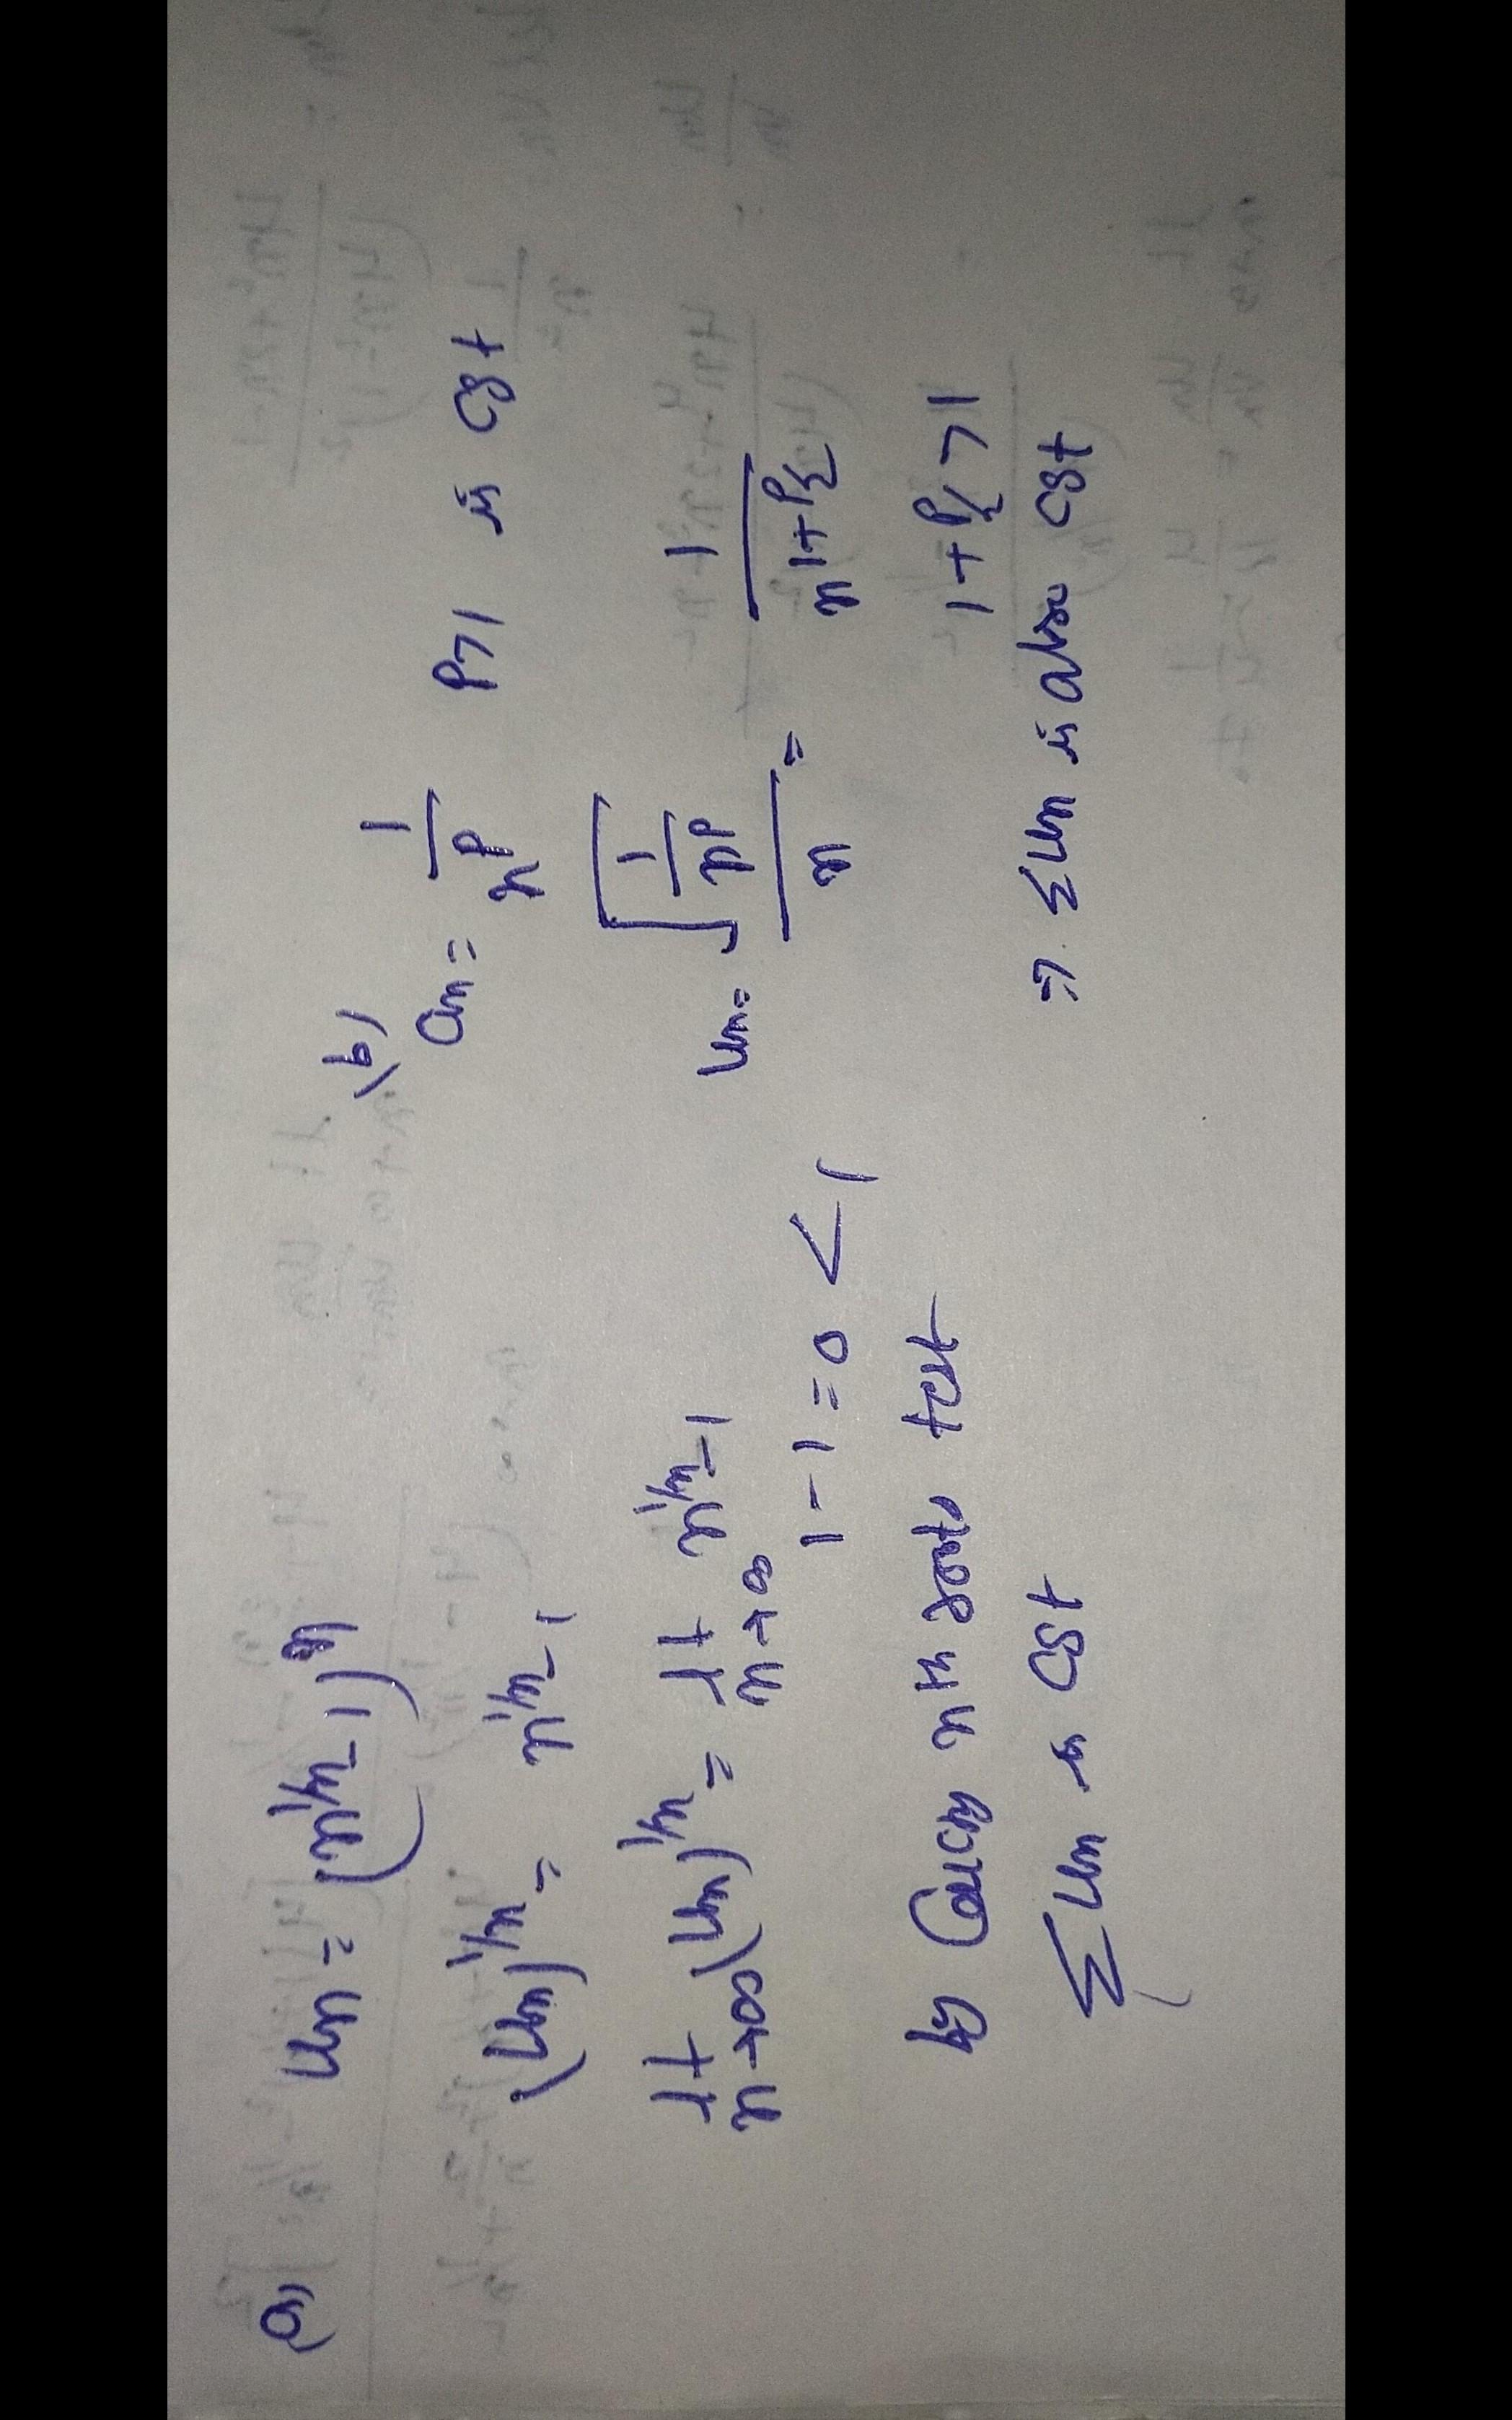 (a) un = (n^{1/n} - 1)^n
(un)^{1/n} = n^{1/n} - 1
lt n→∞ (un)^{1/n} = lt n→∞ n^{1/n} - 1
1 - 1 = 0 < 1
by Caucy nth root test
Σun is cgt
(b)
an = 1/n^p p>1 is cgt
un = √(1/n^p)/n = 1/n^{1+p/2}
1+p/2 > 1
⇒ Σun is also cgt